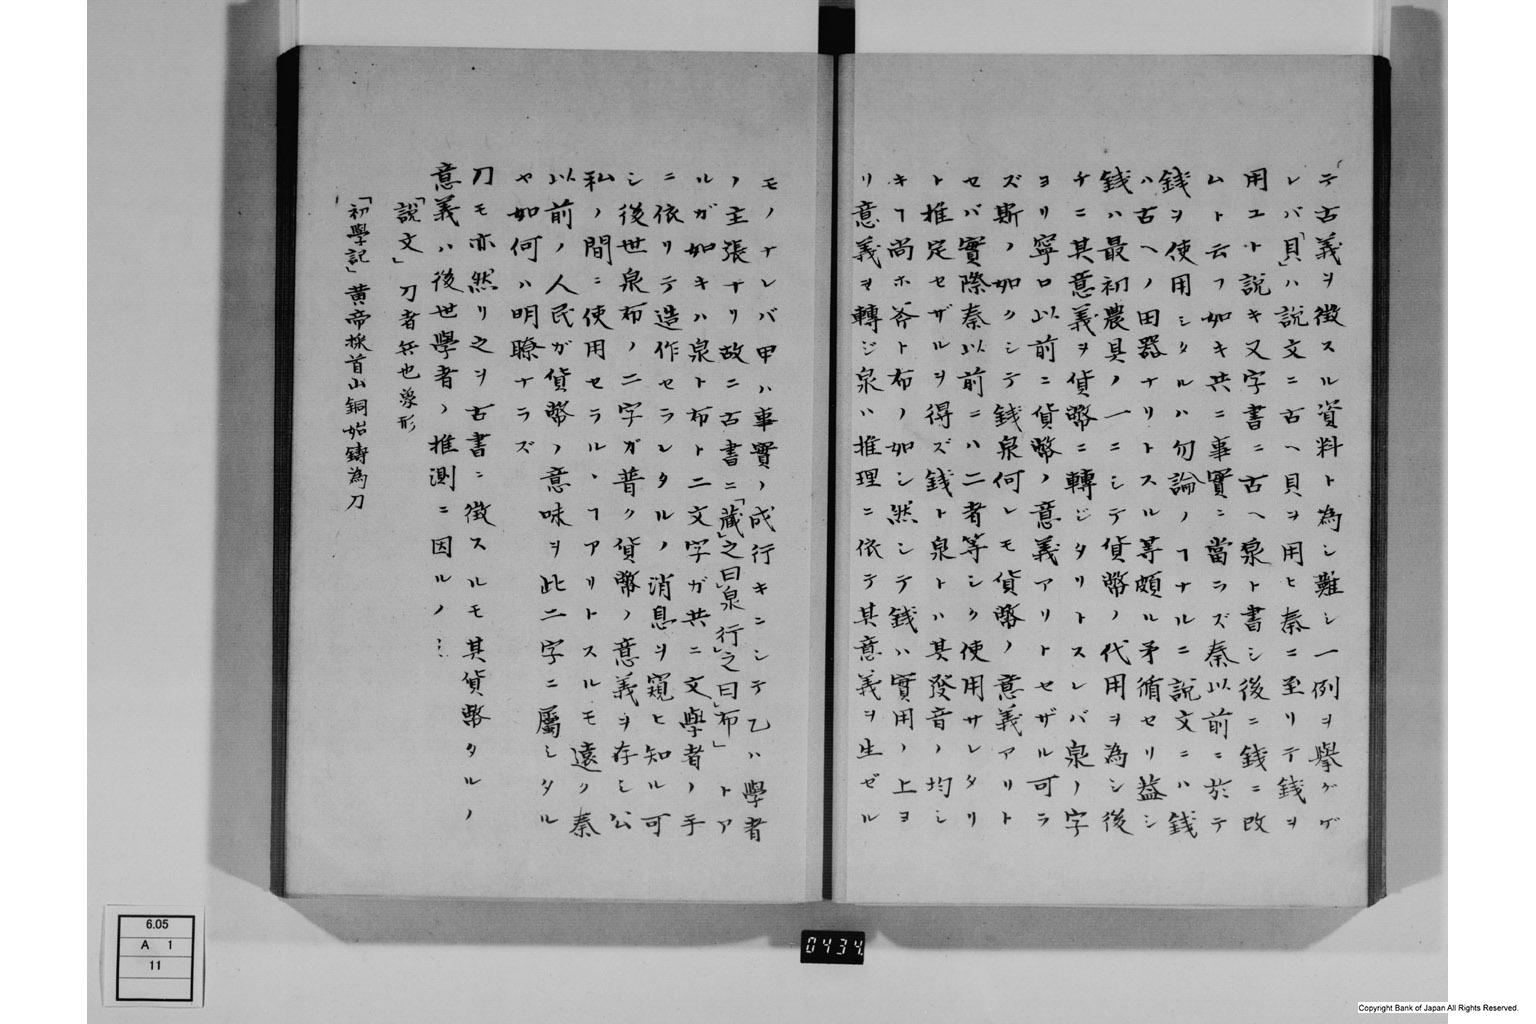 テ古義ヲ徴スル資料ト為シ難シ一例ヲ擧グゲ
レバ「貝」ハ説文ニ古ヘ貝ヲ用ヒ秦ニ至リテ錢ヲ
用ユト説キ又字書ニ古ヘ泉ト書シ後ニ錢ニ改
ムト云フ如キ共ニ事實ニ當ラズ秦以前ニ於テ
錢ヲ使用シタルハ勿論ノヿナルニ説文ニハ錢
ハ古ヘノ田器ナリトスル等頗ル矛循セリ益シ
錢ハ最初農具ノ一ニシテ貨幣ノ代用ヲ為シ後
チニ其意義ヲ貨幣ニ轉ジタリトスレバ泉ノ字
ヨリ寧ロ以前ニ貨幣ノ意義アリトセザル可ラ
ズ斯ノ如クシテ錢泉何レモ貨幣ノ意義アリト
セバ實際秦以前ニハ二者等シク使用サレタリ
ト推定セザルヲ得ズ錢ト泉トハ其發音ノ均シ
キヿ尚ホ斧ト布ノ如シ然シテ錢ハ實用ノ上ヨ
リ意義ヲ轉ジ泉ハ推理ニ依テ其意義ヲ生ゼル
モノナレバ甲ハ事實ノ成行キニシテ乙ハ學者
ノ主張ナリ故ニ古書ニ「藏」之曰「泉行」之曰「布」トア
ルガ如キハ泉ト布ト二文字ガ共ニ文學者ノ手
ニ依リテ造作セラレタルノ消息ヲ窺ヒ知ル可
シ後世泉布ノ二字ガ普ク貨幣ノ意義ヲ存シ公
私ノ間ニ使用セラルヽヿアリトスルモ遠ク秦
以前ノ人民ガ貨幣ノ意味ヲ此二字ニ屬シタル
ヤ如何ハ明瞭ナラズ
刀モ亦然リ之ヲ古書ニ徴スルモ其貨幣タルノ
意義ハ後世學者ノ推測ニ因ルノミ
「説文」刀者兵也象形
「初學記」黄帝採首山銅始鑄為刀
6.05
A 1
11
0434
Copyright Bank of Japan All Rights Reserved.